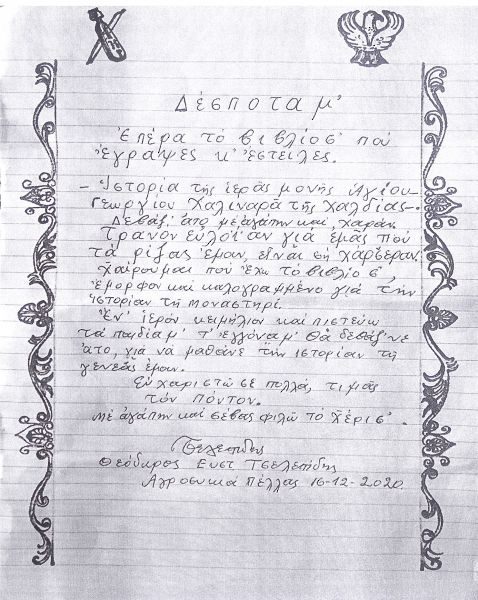 Δέσποτα μ'
Ἐπέρα το βιβλίο σ' που
ἔγραψες κ' ἔστειλες.
- Ἱστορία τῆς ἱερᾶς μονῆς Ἁγίου
Γεωργίου Χαλιναρᾶ τῆς Χαλδίας -.
Δεβάζ' ατο με ἀγάπην και χαράν.
Τρανόν εὐλοΐαν γιά ἐμᾶς που
τά ρίζας ἐμουν εἶναι σή Χαρίεραν.
Χαίρουμαι που ἔχω το βιβλίο σ',
ἔμορφον και καλογραμμένο γιά τήν
ἱστορίαν τη μοναστηρί.
Ἐν' ἱερόν κειμήλιον και πιστεύω
τά παιδία μ' τ' εγγόνα μ' θά δεβάζ'νε
ατο, γιά νά μαθάνε τήν ιστορίαν τη
γενεᾶς ἐμουν.
Εὐχαριστῶ σε πολλά, τιμᾶς
τόν Πόντον.
Μέ ἀγάπην και σέβας φιλῶ το χέρι σ'.
Τσελεπίδης
Θεόδωρος Ευστ Τσελεπίδης
Αγροσυκιά Πέλλας 16-12-2020